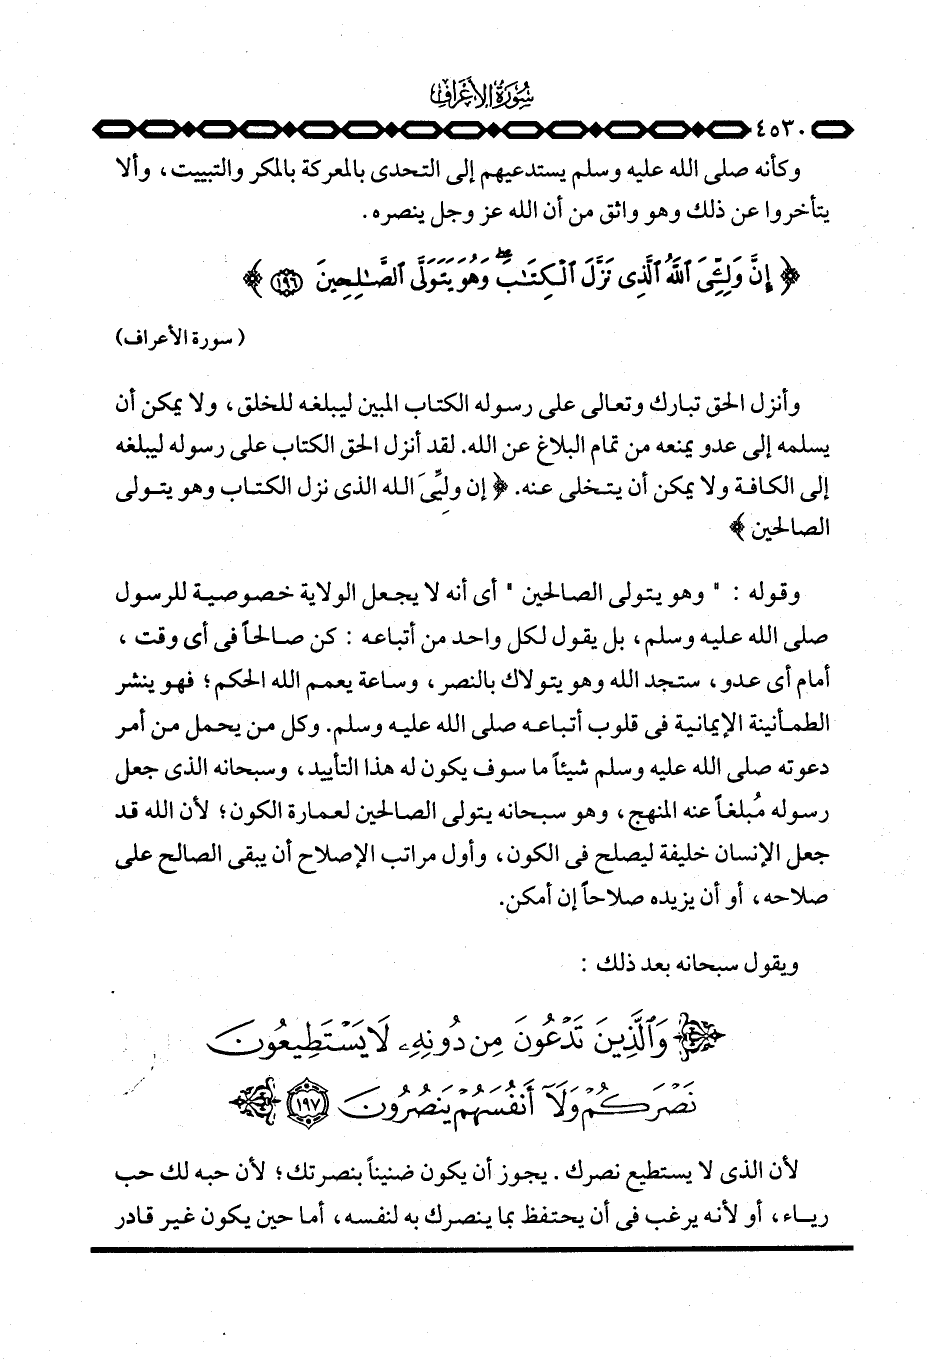 سُورَةُ الأَعْرَافِ
٤٥٣٠
وكأنه صلى الله عليه وسلم يستدعيهم إلى التحدى بالمعركة بالمكر والتبييت، وألا
يتأخروا عن ذلك وهو واثق من أن الله عز وجل ينصره.
﴿ إِنَّ وَلِـِّۧىَ ٱللَّهُ ٱلَّذِى نَزَّلَ ٱلْكِتَـٰبَ ۖ وَهُوَ يَتَوَلَّى ٱلصَّـٰلِحِينَ ١٩٦ ﴾
( سورة الأعراف)
وأنزل الحق تبارك وتعالى على رسوله الكتاب المبين ليبلغه للخلق، ولا يمكن أن
يسلمه إلى عدو يمنعه من تمام البلاغ عن الله. لقد أنزل الحق الكتاب على رسوله ليبلغه
إلى الكافة ولا يمكن أن يتخلى عنه. ﴿ إن وليِّىَ الله الذى نزل الكتاب وهو يتولى
الصالحين ﴾
وقوله : " وهو يتولى الصالحين " أى أنه لا يجعل الولاية خصوصية للرسول
صلى الله عليه وسلم، بل يقول لكل واحد من أتباعه : كن صالحاً فى أى وقت ،
أمام أى عدو، ستجد الله وهو يتولاك بالنصر، وساعة يعمم الله الحكم؛ فهو ينشر
الطمأنينة الإيمانية فى قلوب أتباعه صلى الله عليه وسلم. وكل من يحمل من أمر
دعوته صلى الله عليه وسلم شيئاً ما سوف يكون له هذا التأييد، وسبحانه الذى جعل
رسوله مُبلغاً عنه المنهج، وهو سبحانه يتولى الصالحين لعمارة الكون؛ لأن الله قد
جعل الإنسان خليفة ليصلح فى الكون، وأول مراتب الإصلاح أن يبقى الصالح على
صلاحه، أو أن يزيده صلاحاً إن أمكن.
ويقول سبحانه بعد ذلك :
﴿ وَٱلَّذِينَ تَدْعُونَ مِن دُونِهِۦ لَا يَسْتَطِيعُونَ
نَصْرَكُمْ وَلَآ أَنفُسَهُمْ يَنصُرُونَ ١٩٧ ﴾
لأن الذى لا يستطيع نصرك . يجوز أن يكون ضنيناً بنصرتك؛ لأن حبه لك حب
رياء، أو لأنه يرغب فى أن يحتفظ بما ينصرك به لنفسه، أما حين يكون غير قادر